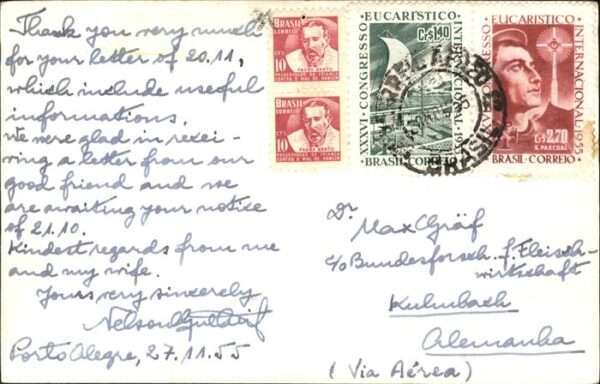 Thank you very much
for your letter of 20.11,
which include useful
informations.
We were glad in recei-
ving a letter from our
good friend and we
are awaiting your notice
of 21.10.
Kindest regards from me
and my wife.
Yours very sincerely
Nelson
Porto Alegre, 27.11.55
BRASIL
CORREIO
10
CTS
PADRE BENTO
CONTRA O MAL DE HANSEN
BRASIL
CORREIO
10
CTS
PADRE BENTO
CONTRA O MAL DE HANSEN
XXXVI - CONGRESSO EUCARÍSTICO INTERNACIONAL 1955
Cr$1,40
BRASIL CORREIO
CONGRESSO EUCARÍSTICO INTERNACIONAL 1955
Cr$ 2,70
S. PASCOAL
BRASIL-CORREIO
Dr.
Max Gräf
c/o Bundesforsch. f. Fleisch-
wirtschaft
Kulmbach
Alemanha
(Via Aérea)